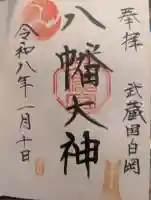 奉拝
武蔵国白岡
八幡大神
令和八年一月十日